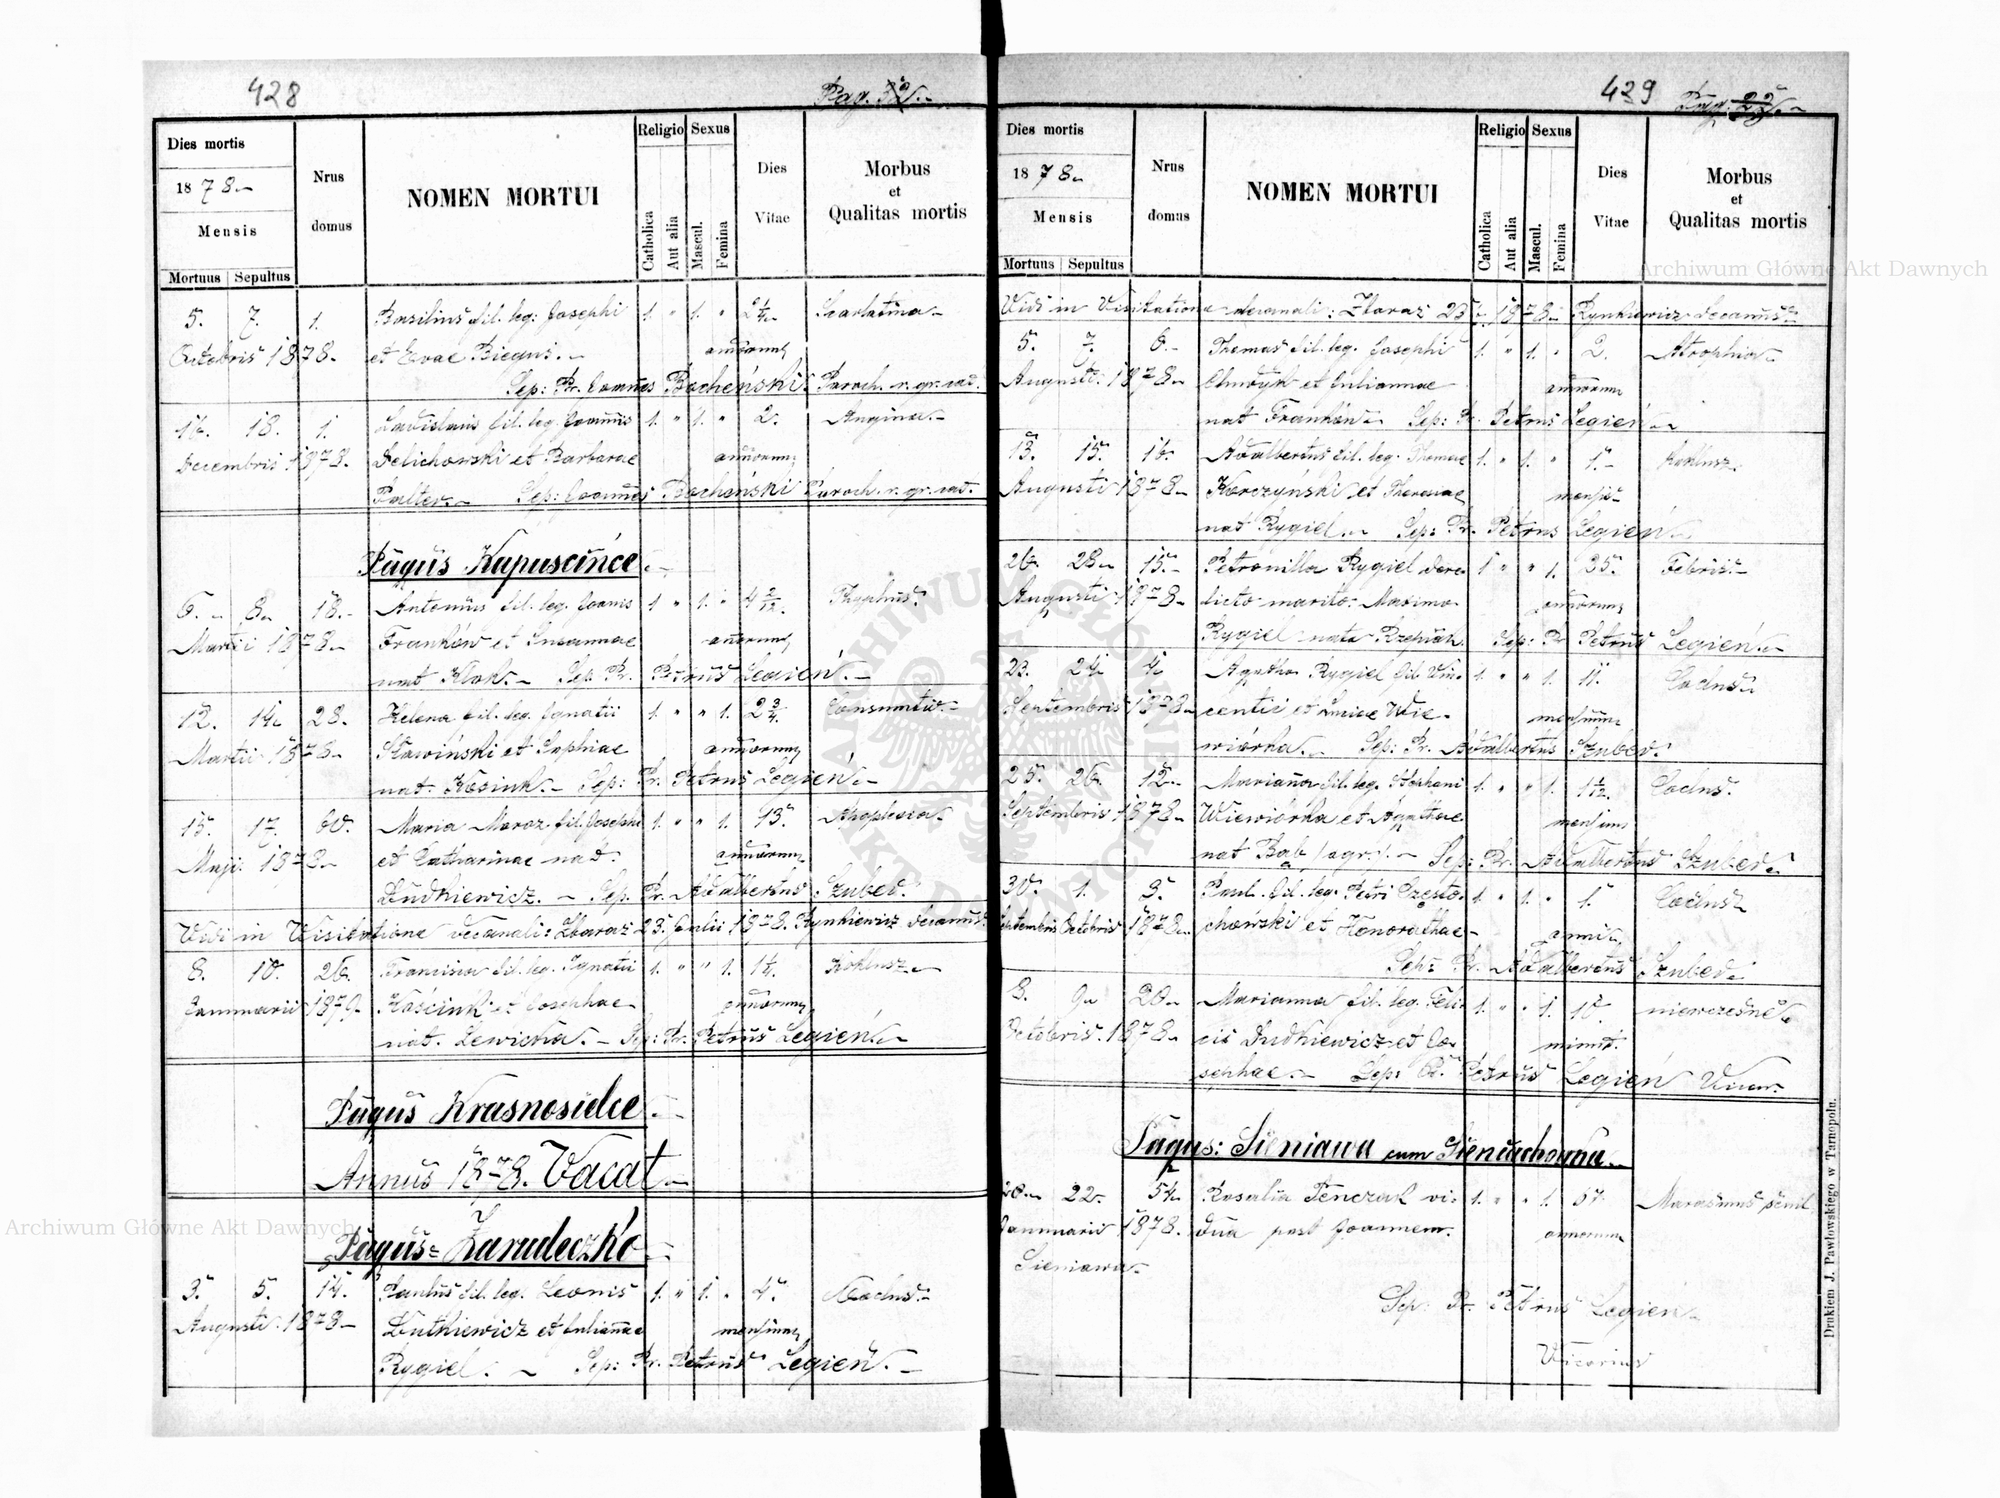 428
Pag. 32.
Dies mortis
1878.
Mensis
Mortuus Sepultus
Nrus domus
NOMEN MORTUI
Religio
Catholica
Aut alia
Sexus
Mascul.
Femina
Dies Vitae
Morbus et Qualitas mortis
5. 7. 1. Basilius fil. leg. Josephi 1. " 1. " 2 1/4 Scarlatina
Octobris 1878. et Evae Biegus. annorum
Sep: Pr. Joannes Bocheński Paroch. r. gr. cad.
16. 18. 1. Ladislaus fil. leg. Joannis 1. " 1. " 2. Angina.
Decembris 1878. Delichowski et Barbarae annorum
Palter. Sep: Joannes Bocheński Paroch. r. gr. cad.
Pagus Kapuscińce
6. 8. 18. Antonius fil. leg. Joannis 1 " 1. " 4 2/12. Thyphus.
Martii 1878. Franków et Susannae annorum
nat Klok. Sep: Pr. Petrus Legień.
12. 14. 28. Helena fil. leg. Ignatii 1. " " 1. 2 3/4. Consumtio.
Martii 1878. Sławiński et Sophiae annorum
nat. Kosiuk. Sep: Pr. Petrus Legień.
15. 17. 60. Maria Moroz fil. Josephi 1. " " 1. 93. Apoplexia.
Maji 1878. et Catharinae nat. annorum
Dudkiewicz. Sep: Pr. Adalbertus Szubed.
Vidi in Visitatione decanali: Zbaraż 23. Julii 1878. Rynkiewicz decanus.
8. 10. 26. Francisca fil. leg. Ignatii 1. " " 1. 1 1/4. Koklusz.
Januarii 1879. Kościuk et Josephae annorum
nat. Lewicka. Sep: Pr. Petrus Legień.
Pagus Krasnosielce
Annus 1878. Vacat.
Pagus: Zarudeczko
3. 5. 14. Paulus fil. leg. Leonis 1. " 1. " 4. Coclus.
Augusti 1878. Dutkiewicz et Julianae mensium
Rygiel. Sep: Pr. Petrus Legień.
429
Dies mortis
1878.
Mensis
Mortuus Sepultus
Nrus domus
NOMEN MORTUI
Religio
Catholica
Aut alia
Sexus
Mascul.
Femina
Dies Vitae
Morbus et Qualitas mortis
Vidi in Visitatione decanali: Zbaraż 1878. Rynkiewicz decanus.
5. 7. 6. Thomas fil. leg. Josephi 1. " 1. " 2. Atrophia
Augusti. 1878. et Juliannae annorum
nat Franków. Sep: Pr. Petrus Legień.
13. 15. 16. Adalbertus fil. leg. Thomae 1. " 1. " 1. Koklusz.
Augusti 1878. Korczyński et Theresiae mensis
nat Rygiel. Sep: Pr. Petrus Legień.
26. 28. 15. Petronilla Rygiel dere- 1 " " 1. 35. Febris.
Augusti 1878. licto marito Maximo annorum
Rygiel nata Sep: Pr Petrus Legień.
23. 24. 4. Agatha Rygiel fil Vin- 1. " " 1. 11. Coclus.
Septembris 1878. centii et Luciae Wie- mensium
wiórka. Sep: Pr. Adalbertus Szubed.
25. 26. 12. Marianna fil. leg. Stephani 1. " " 1. 1 1/12. Coclus.
Septembris 1878. Wiewiórka et Agathae
nat Bąb /agr./. Sep: Pr. Adalbertus Szubed.
30. 1. 3. Paul. fil. leg. Petri Często- 1. " 1. " 1. Coclus
Septembris Octobris 1878. chowski et Honorathae anni.
Sep: Pr. Adalbertus Szubed.
8. 9. 20. Marianna fil. leg. Feli- 1. " " 1. 10. niewczesne.
Octobris. 1878. cis Dudkiewicz et Jo- minut.
sephae. Sep: Pr. Petrus Legień Vicar.
Pagus: Sieniawa cum Sieniachówka
20. 22. 54. Rosalia Tenczak vi- 1. " " 1. 67. Marasmus senil.
Januarii 1878. dua post Joannem. annorum
Sieniawa.
Sep: Pr. Petrus Legien.
Vicarius
Drukiem J. Pawłowskiego w Tarnopolu.
Archiwum Główne Akt Dawnych
Archiwum Główne Akt Dawnych
ARCHIWUM GŁÓWNE AKT DAWNYCH